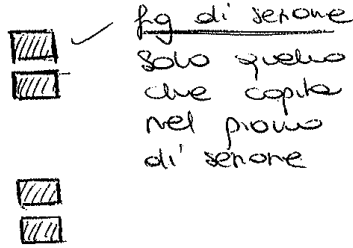 fig di sezione
solo quello
che capita
nel piano
di sezione